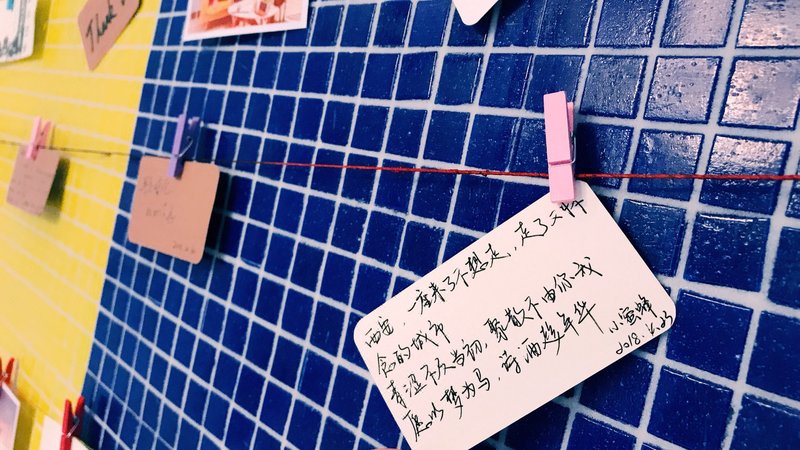 Thank
西安，一座来了不想走，走了又怀
念的城市
青涩不及当初，聚散不由你我
愿以梦为马，诗画趁年华
小蜜蜂
2018.6.23